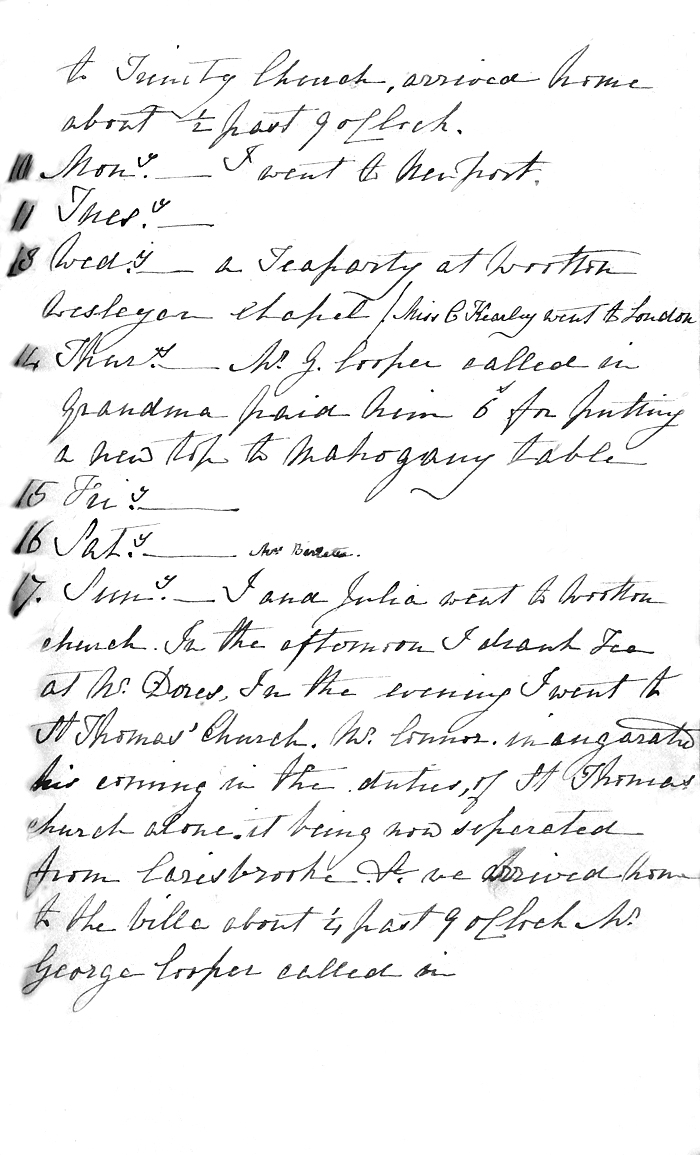 to Trinity Church, arrived home
about ½ past 9 oClock.
10 Monʸ. — I went to Newport.
11 Thes.ʸ —
13 Wed.ʸ — a Teaparty at Wootton
Wesleyan Chapel / Miss C Kearley went to London
14 Thur.ʸ — Mʳ G. Cooper called in
grandma paid him 6ˢ for putting
a new top to Mahogany table
15 Fri.ʸ —
16 Sat.ʸ — Mrs
17. Sunʸ. — I and Julia went to Wootton
church. In the afternoon I drank Tea
at Mʳ Dores, In the evening I went to
St Thomas' Church. Mʳ. Connor. inaugarated
his coming in the duties, of St Thomas
church alone. it being now seperated
from Carisbrooke &c we arrived home
to the Villa about ¼ past 9 oClock Mʳ
George Cooper called in